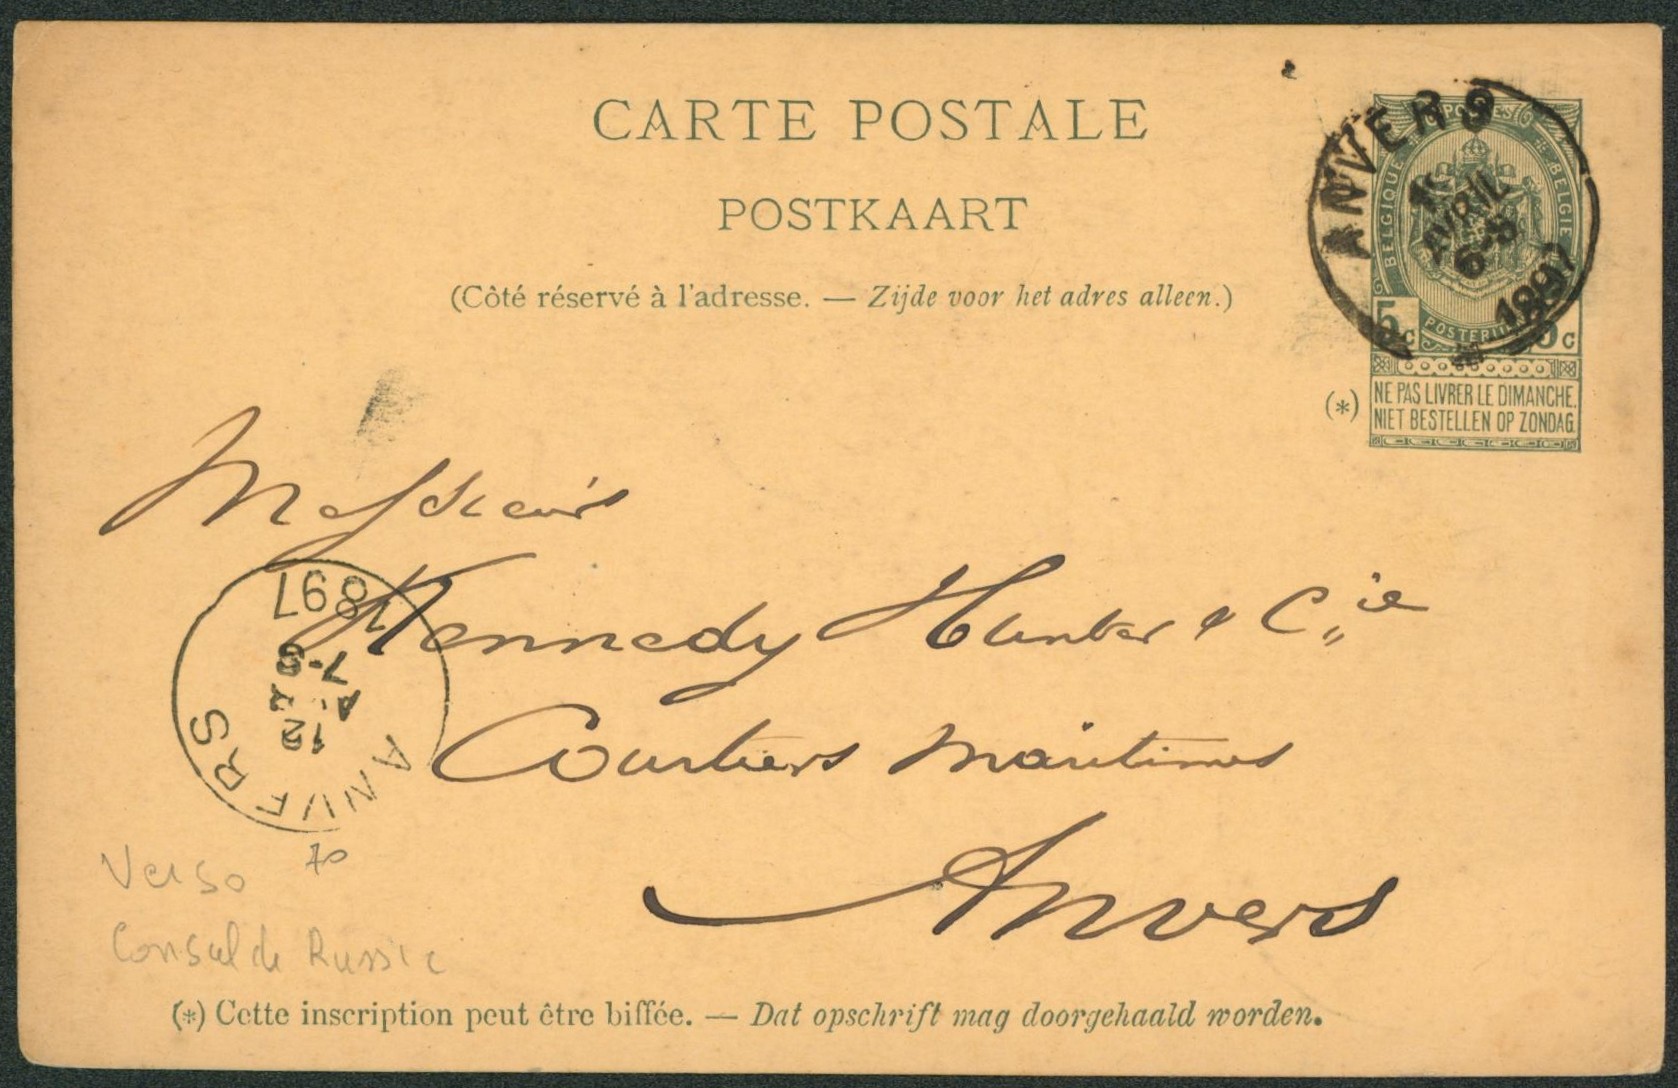 CARTE POSTALE
POSTKAART
(Côté réservé à l'adresse. — Zijde voor het adres alleen.)
ANVERS
AVRIL
1897
POSTES
BELGIQUE
BELGIE
5c 5c
(*) NE PAS LIVRER LE DIMANCHE.
NIET BESTELLEN OP ZONDAG.
Messieurs
Kennedy Hunter & Cie
Courtiers maritimes
Anvers
ANVERS
12
7-8
1897
Verso
Consul de Russie
(*) Cette inscription peut être biffée. — Dat opschrift mag doorgehaald worden.